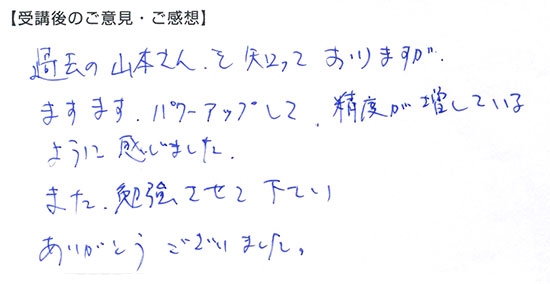 【受講後のご意見・ご感想】
過去の山本さん、を知っておりますが、
ますます、パワーアップして、精度が増している
ように感じました。
また、勉強させて下さい
ありがとうございました。